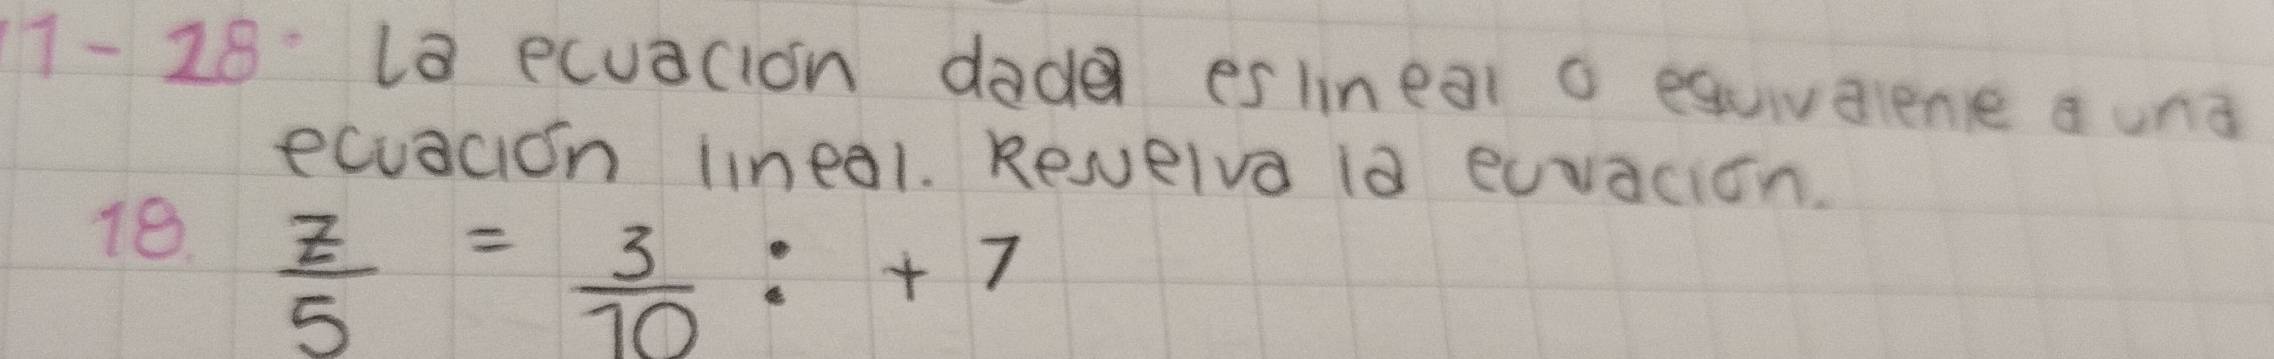 11-28. La ecuación dada es lineal o equivalente a una
ecuación lineal. Resuelva la ecuación.
18. z/5 = 3/10 : + 7